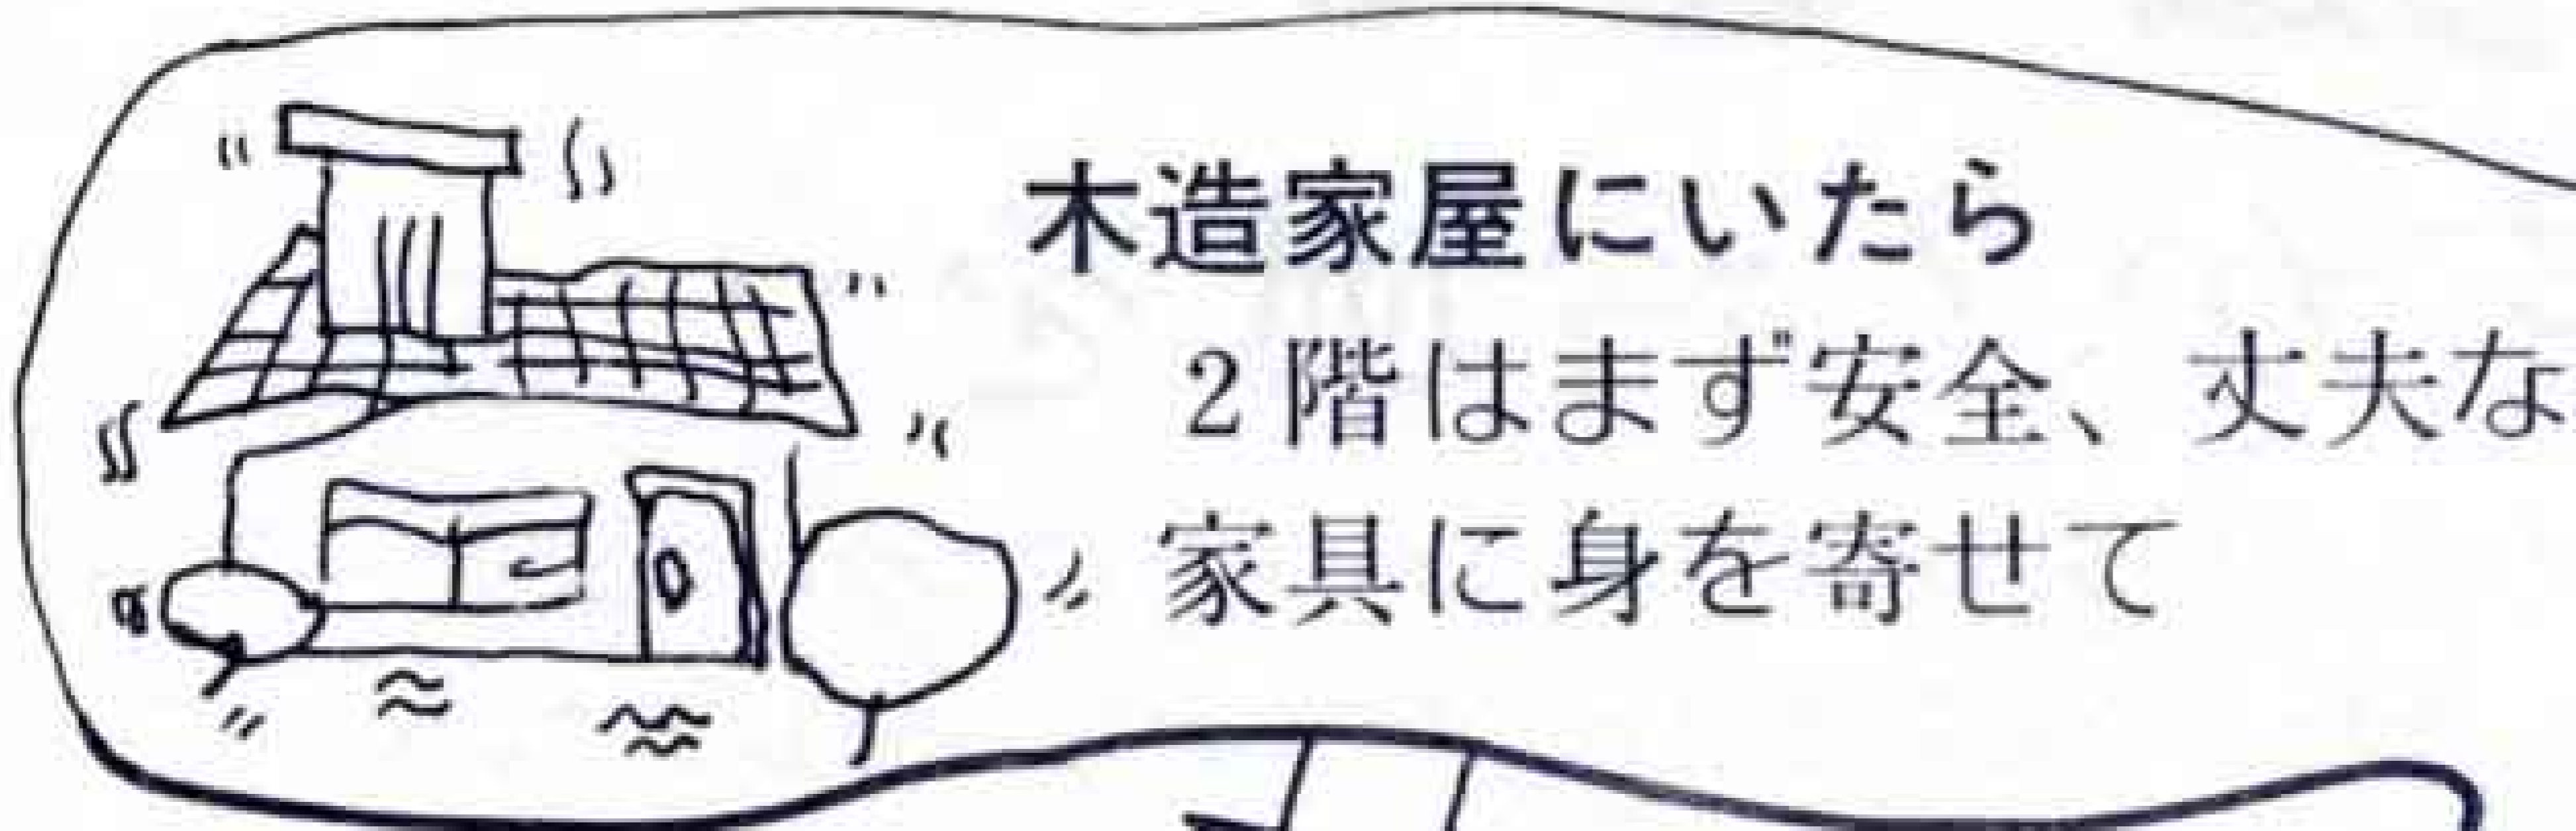 木造家屋にいたら
2階はまず安全、丈夫な
家具に身を寄せて